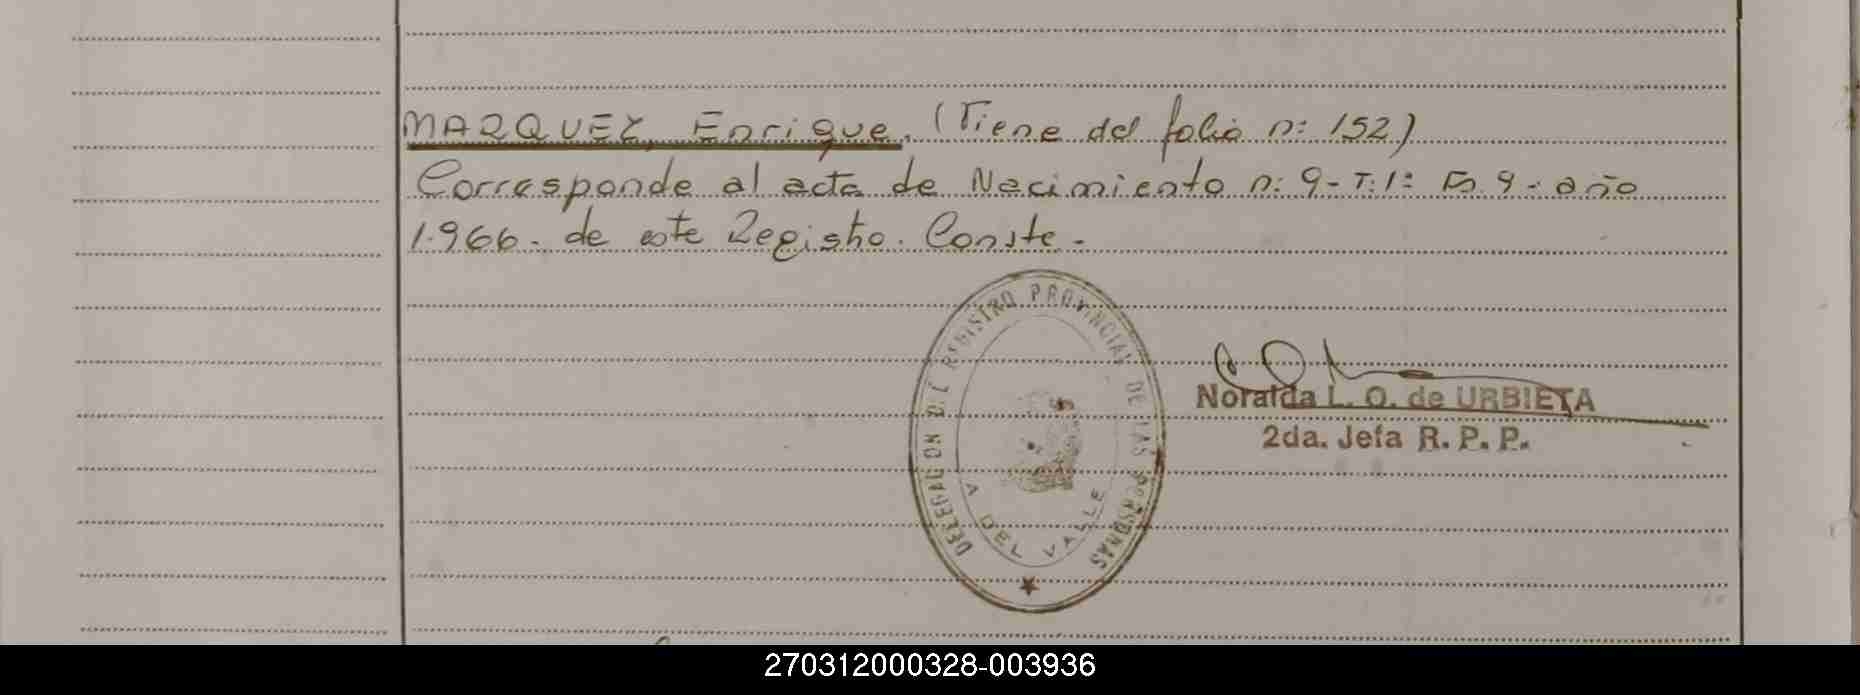 MARQUEZ, Enrique. (Viene del folio n: 152)
Corresponde al acta de Nacimiento n: 9- T: 1º Fº 9- año
1.966.- de este Registro. Conste.-
DELEGACION DEL REGISTRO PROVINCIAL DE LAS PERSONAS
A DEL VALLE
Noralda L. O. de URBIETA
2da. Jefa R. P. P.
270312000328-003936